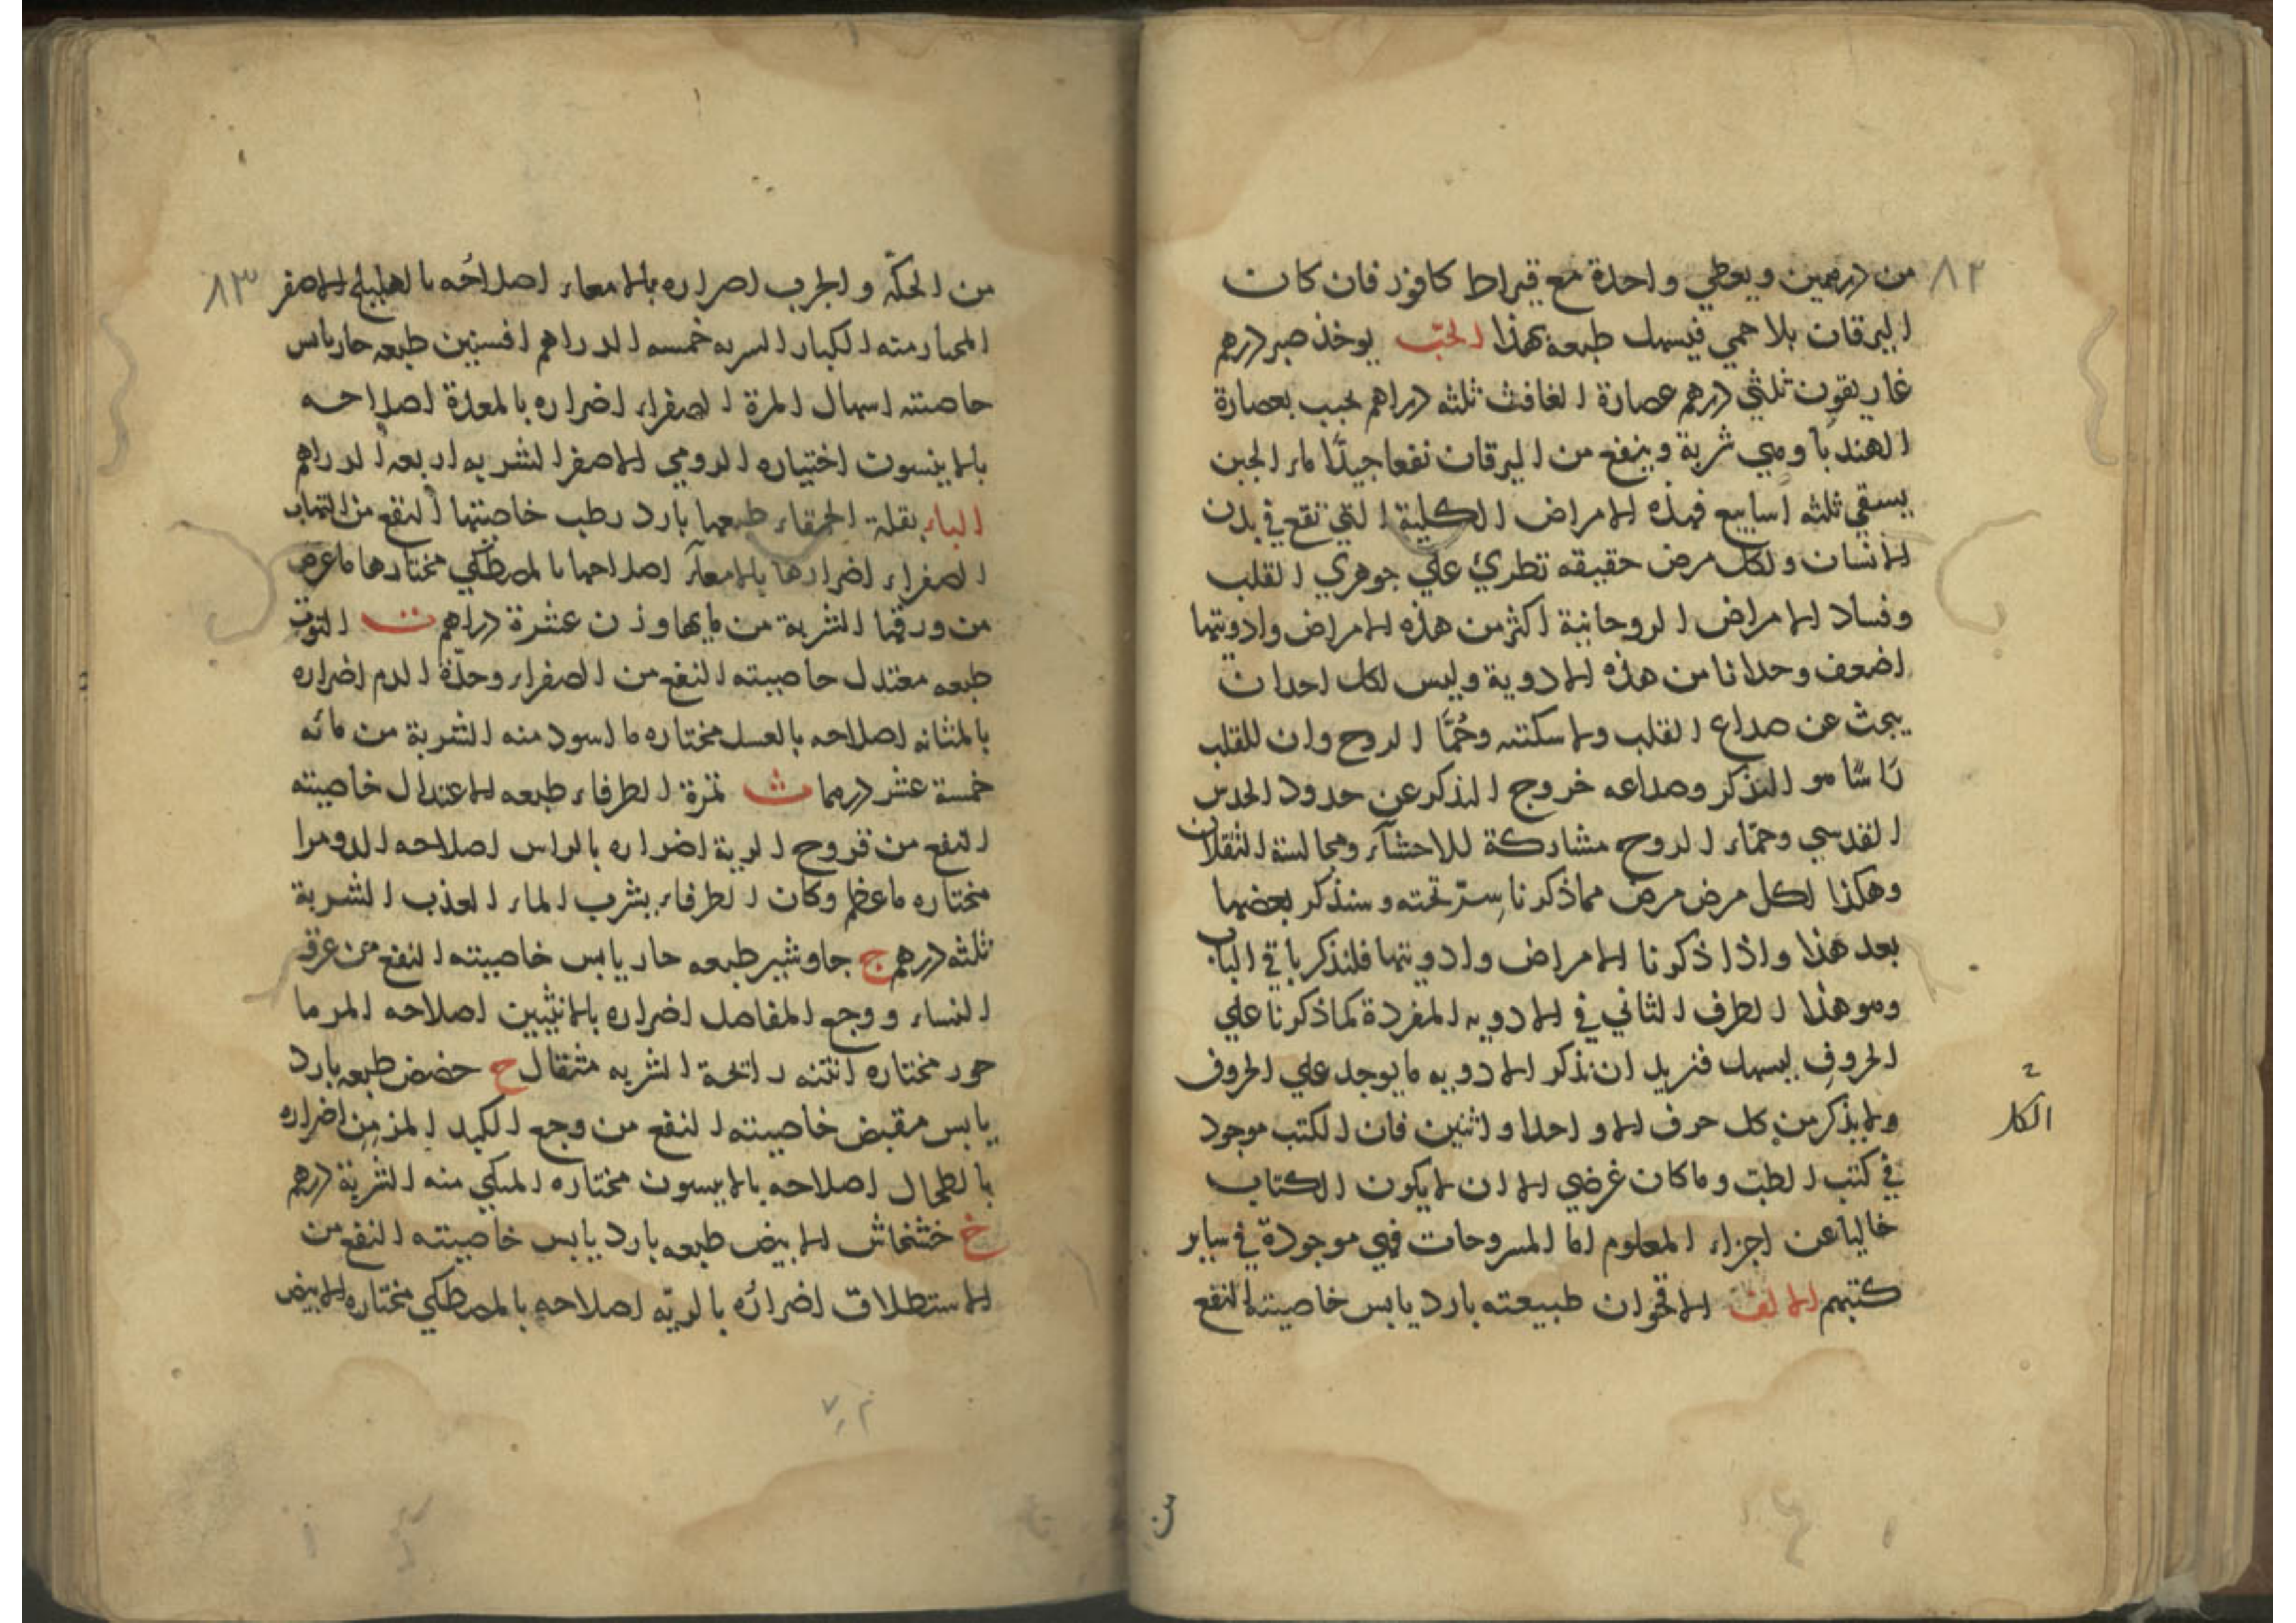 ٨٢
من درهمين ويعطي واحدة مع قيراط كافور فان كان
اليرقان بلا حمي فيسهل طبعه بهذا الحبّ يوخذ صبر درهم
غاريقون ثلثي درهم عصارة الغافث ثلثه دراهم يحبب بعصارة
الهندبا وهي شربة وينفع من اليرقان نفعا جيدًا ماء الجبن
يسقي ثلثه اسابيع فهذه الامراض الكلية التي تقع في بدن
الانسان ولكل مرض حقيقه تطريُ علي جوهري القلب
وفساد الامراض الروحانية اكثر من هذه الامراض وادويتها
اضعف وحدانا من هذه الادوية وليس لكل احد ان
يبحث عن صداع القلب ولا سكتته وحُمَّا الروح وان للقلب
راسًا هو التذكر وصداعه خروج التذكر عن حدود الحدس
القدسي وحمّاء الروح مشاركة للاحشاء ومجالسة الثقلان
وهكذا لكل مرض مرض مما ذكرنا سِرّ تحته وسنذكر بعضها
بعد هذا واذا ذكرنا الامراض وادويتها فلنذكر باقي الباب
وهو هذا الطرف الثاني في الادويه المفردة كما ذكرنا علي
الحروف ليسهل فنريد ان نذكر الادويه ما يوجد علي الحروف
ولا يذكر من كل حرف الا واحدا واثنين فان الكتب موجود
الكل
في كتب الطبّ وما كان غرضي الا ان لا يكون الكتاب
خاليا عن اجزاء المعلوم اما المشروحات فهي موجودة في سایر
كتبهم الالف الاقحوان طبيعته بارد يابس خاصيته النفع
من
٨٣
من الحكّه والجرب اصراره بالامعاء اصلاحُه بالهليلج الاصفر
المختار منه الكبار الشربه خمسه الدراهم افسنتين طبعه حار يابس
حاصيته اسهال المرة الصفراء اضراره بالمعدة اصلاحه
بالانيسون اختياره الرومي الاصفر الشربه اربعه الدراهم
الباء بقلة الحمقاء طبعها بارد رطب خاصيتها النفع من التهاب
الصفراء اضرارها بالامعاء اصلاحها بالمصطكي مختارها ما عرض
من ورقها الشربة من مايها وزن عشرة دراهم ت التوت
طبعه معتدل حاصيته النفع من الصفراء وحدّة الدم اضراره
بالمثانه اصلاحه بالعسل مختاره ما اسود منه الشربة من مائه
خمسة عشر درهما ث ثمرة الطرفاء طبعه الاعتدال خاصيته
النفع من قروح الرية اضراره بالراس اصلاحه الدومرا
مختاره ما عظم وكان الطرفاء يشرب الماء العذب الشربة
ثلثه درهم ج جاوشير طبعه حار يابس خاصيته النفع من عرق
النساء ووجع المفاصل اضراره بالانثيين اصلاحه المرما
حور مختاره انتنه رائحة الشربه مثقال ح حضض طبعه بارد
يابس مقبض خاصيته النفع من وجع الكبد المزمن اضراره
بالطحال اصلاحه بالانيسون مختاره المكي منه الشربة درهم
خ خشخاش الابيض طبعه بارد يابس خاصيته النفع من
الاستطلاق اضرارُه بالريّه اصلاحه بالمصطكي مختاره الابيض